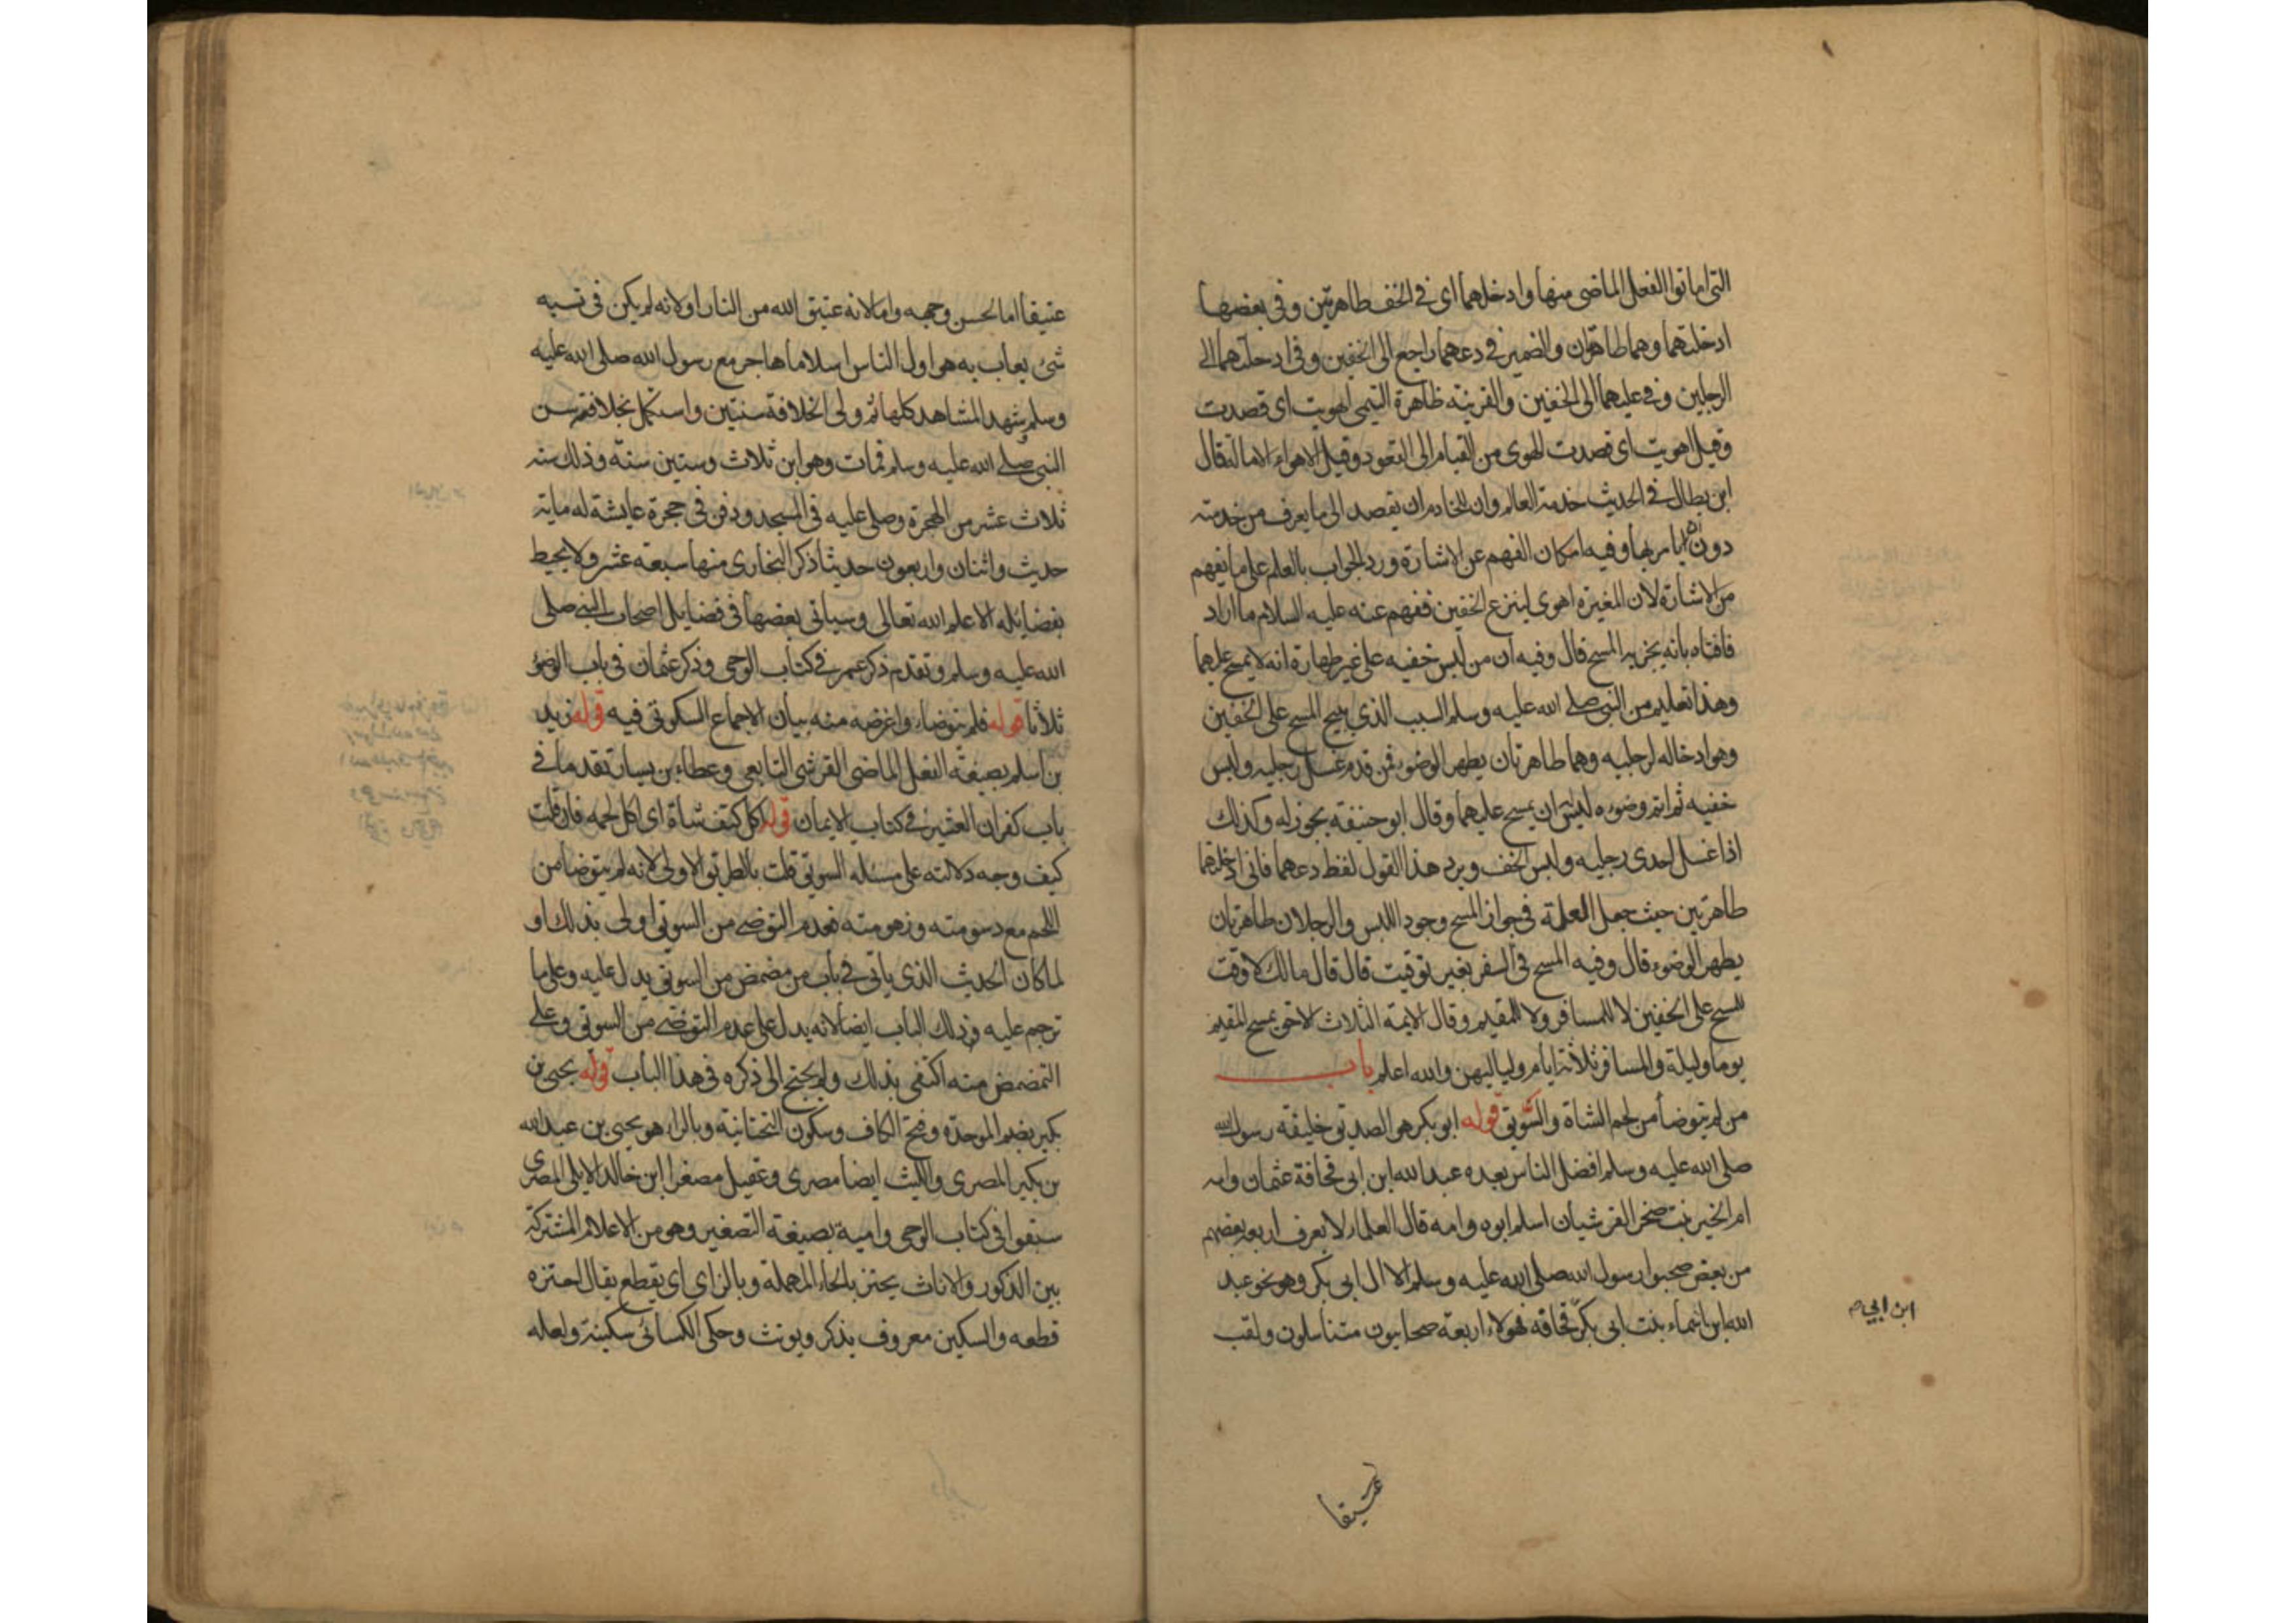 التي اماتوا الفعل الماضي منها وادخلهما اى في الخف طاهرتين وفي بعضها
ادخلتهما وهما طاهرتان والضمير في دعهما راجع الى الخفين وفي ادخلتهما الى
الرجلين وفي عليهما الى الخفين والقرينة ظاهرة التيمي اهويت اى قصدت
وقيل اهويت اى قصدت الهوى من القيام الى القعود وقيل الاهواء الامالة قال
ابن بطال في الحديث خدمة العالم وان للخادم ان يقصد الى ما يعرف من خدمته
دون ان يامر بها وفيه امكان الفهم عن الاشارة ورد الجواب بالعلم على ما يفهم
من الاشارة لان المغيرة اهوى لينزع الخفين ففهم عنه عليه السلام ما اراد
فافتاه بانه يجزيه المسح قال وفيه ان من لبس خفيه على غير طهارة انه لا يمسح عليهما
وهذا تعليم من النبي صلى الله عليه وسلم السبب الذي يبيح المسح على الخفين
وهو ادخاله لرجليه وهما طاهرتان بطهر الوضوء فمن قدم غسل رجليه ولبس
خفيه ثم اتم وضوءه ليس له ان يمسح عليهما وقال ابو حنيفة يجوز له وكذلك
اذا غسل احدى رجليه ولبس الخف ويرد هذا القول لفظ دعهما فاني ادخلتهما
طاهرتين حيث جعل العلة في جواز المسح وجود اللبس والرجلان طاهرتان
بطهر الوضوء قال وفيه المسح في السفر بغير توقيت قال قال مالك لا وقت
للمسح على الخفين لا للمسافر ولا للمقيم وقال الايمة الثلاث الاخر يمسح المقيم
يوما وليلة والمسافر ثلاثة ايام ولياليهن والله اعلم باب
من لم يتوضأ من لحم الشاة والسويق قوله ابو بكر هو الصديق خليفة رسول الله
صلى الله عليه وسلم افضل الناس بعده عبد الله ابن ابي قحافة عثمان وامه
ام الخير بنت صخر القرشيان اسلم ابوه وامه قال العلماء لا يعرف اربعة بعضهم
من بعض صحبوا رسول الله صلى الله عليه وسلم الا ال ابي بكر وهو نحو عبد
الله ابن اسماء بنت ابي بكر قحافة فهولاء اربعة صحابيون متناسلون ولقب
ابن ابي
عتيقا
عتيقا اما لحسن وجهه واما لانه عتيق الله من النار او لانه لم يكن في نسبه
شئ يعاب به هو اول الناس اسلاما هاجر مع رسول الله صلى الله عليه
وسلم وشهد المشاهد كلها ثم ولى الخلافة سنتين واستكمل بخلافته سن
النبي صلى الله عليه وسلم فمات وهو ابن ثلاث وستين سنة وذلك سنه
ثلاث عشر من الهجرة وصلى عليه في المسجد ودفن في حجرة عايشة له ماية
حديث واثنان واربعون حديثا ذكر البخارى منها سبعة عشر ولا يحيط
بفضايله الا علم الله تعالى وسياتي بعضها في فضايل اصحاب النبي صلى
الله عليه وسلم وتقدم ذكر عمر في كتاب الوحي وذكر عثمان في باب الوضؤ
ثلاثا قوله فلم يتوضاء واغرضه منه بيان الاجماع السكوتي فيه قوله زيد
بن اسلم بصيغة الفعل الماضي القرشي التابعي وعطاء بن يسار تقدما في
باب كفران العشير في كتاب الايمان قوله اكل كتف شاة اى اكل لحمه فان قلت
كيف وجه دلالته على مسئلة السويق قلت بالطريق الاولى لانه لم يتوضا من
اللحم مع دسومته وزهومته فعدم التوضى من السويق اولى بذلك او
لما كان الحديث الذى ياتي في باب من مضمض من السويق يدل عليه وعلى ما
ترجم عليه في ذلك الباب ايضا لانه يدل على عدم التوضى من السويق وعلى
التمضمض منه اكتفى بذلك ولم يحتج الى ذكره في هذا الباب قوله يحيى بن
بكير بضم الموحدة وفتح الكاف وسكون التحتانية وبالراء هو يحيى بن عبد الله
بن بكير المصرى والليث ايضا مصرى وعقيل مصغرا ابن خالد الايلي المصرى
سبقوا في كتاب الوحي وامية بصيغة التصغير وهو من الاعلام المشتركة
بين الذكور والاناث يحتز بالحاء المهملة وبالزاي اى يقطع يقال احتزه
قطعه والسكين معروف يذكر ويونث وحكى الكسائى سكينة ولعله